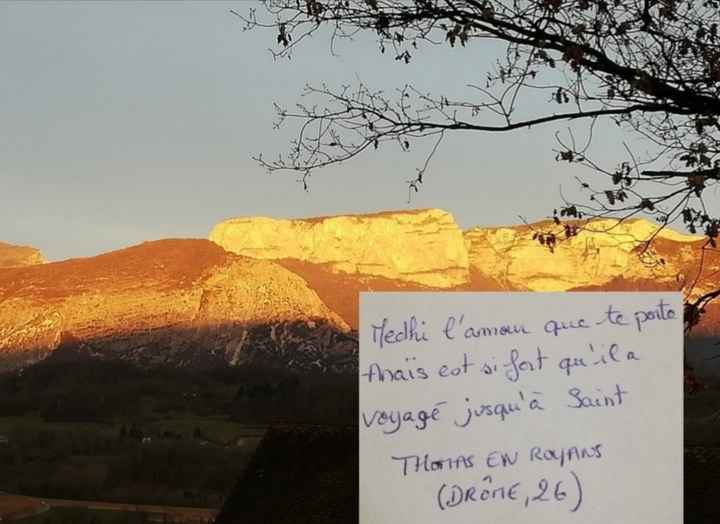 Medhi l'amour que te porte
Anaïs est si fort qu'il a
voyagé jusqu'à Saint
THOMAS EN ROYANS
(DRÔME, 26)